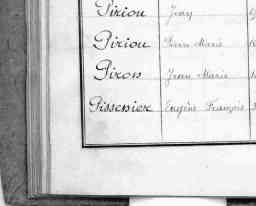 Piriou Jean
Piriou Pierre Marie
Piron Jean Marie
Pissenier Eugène François